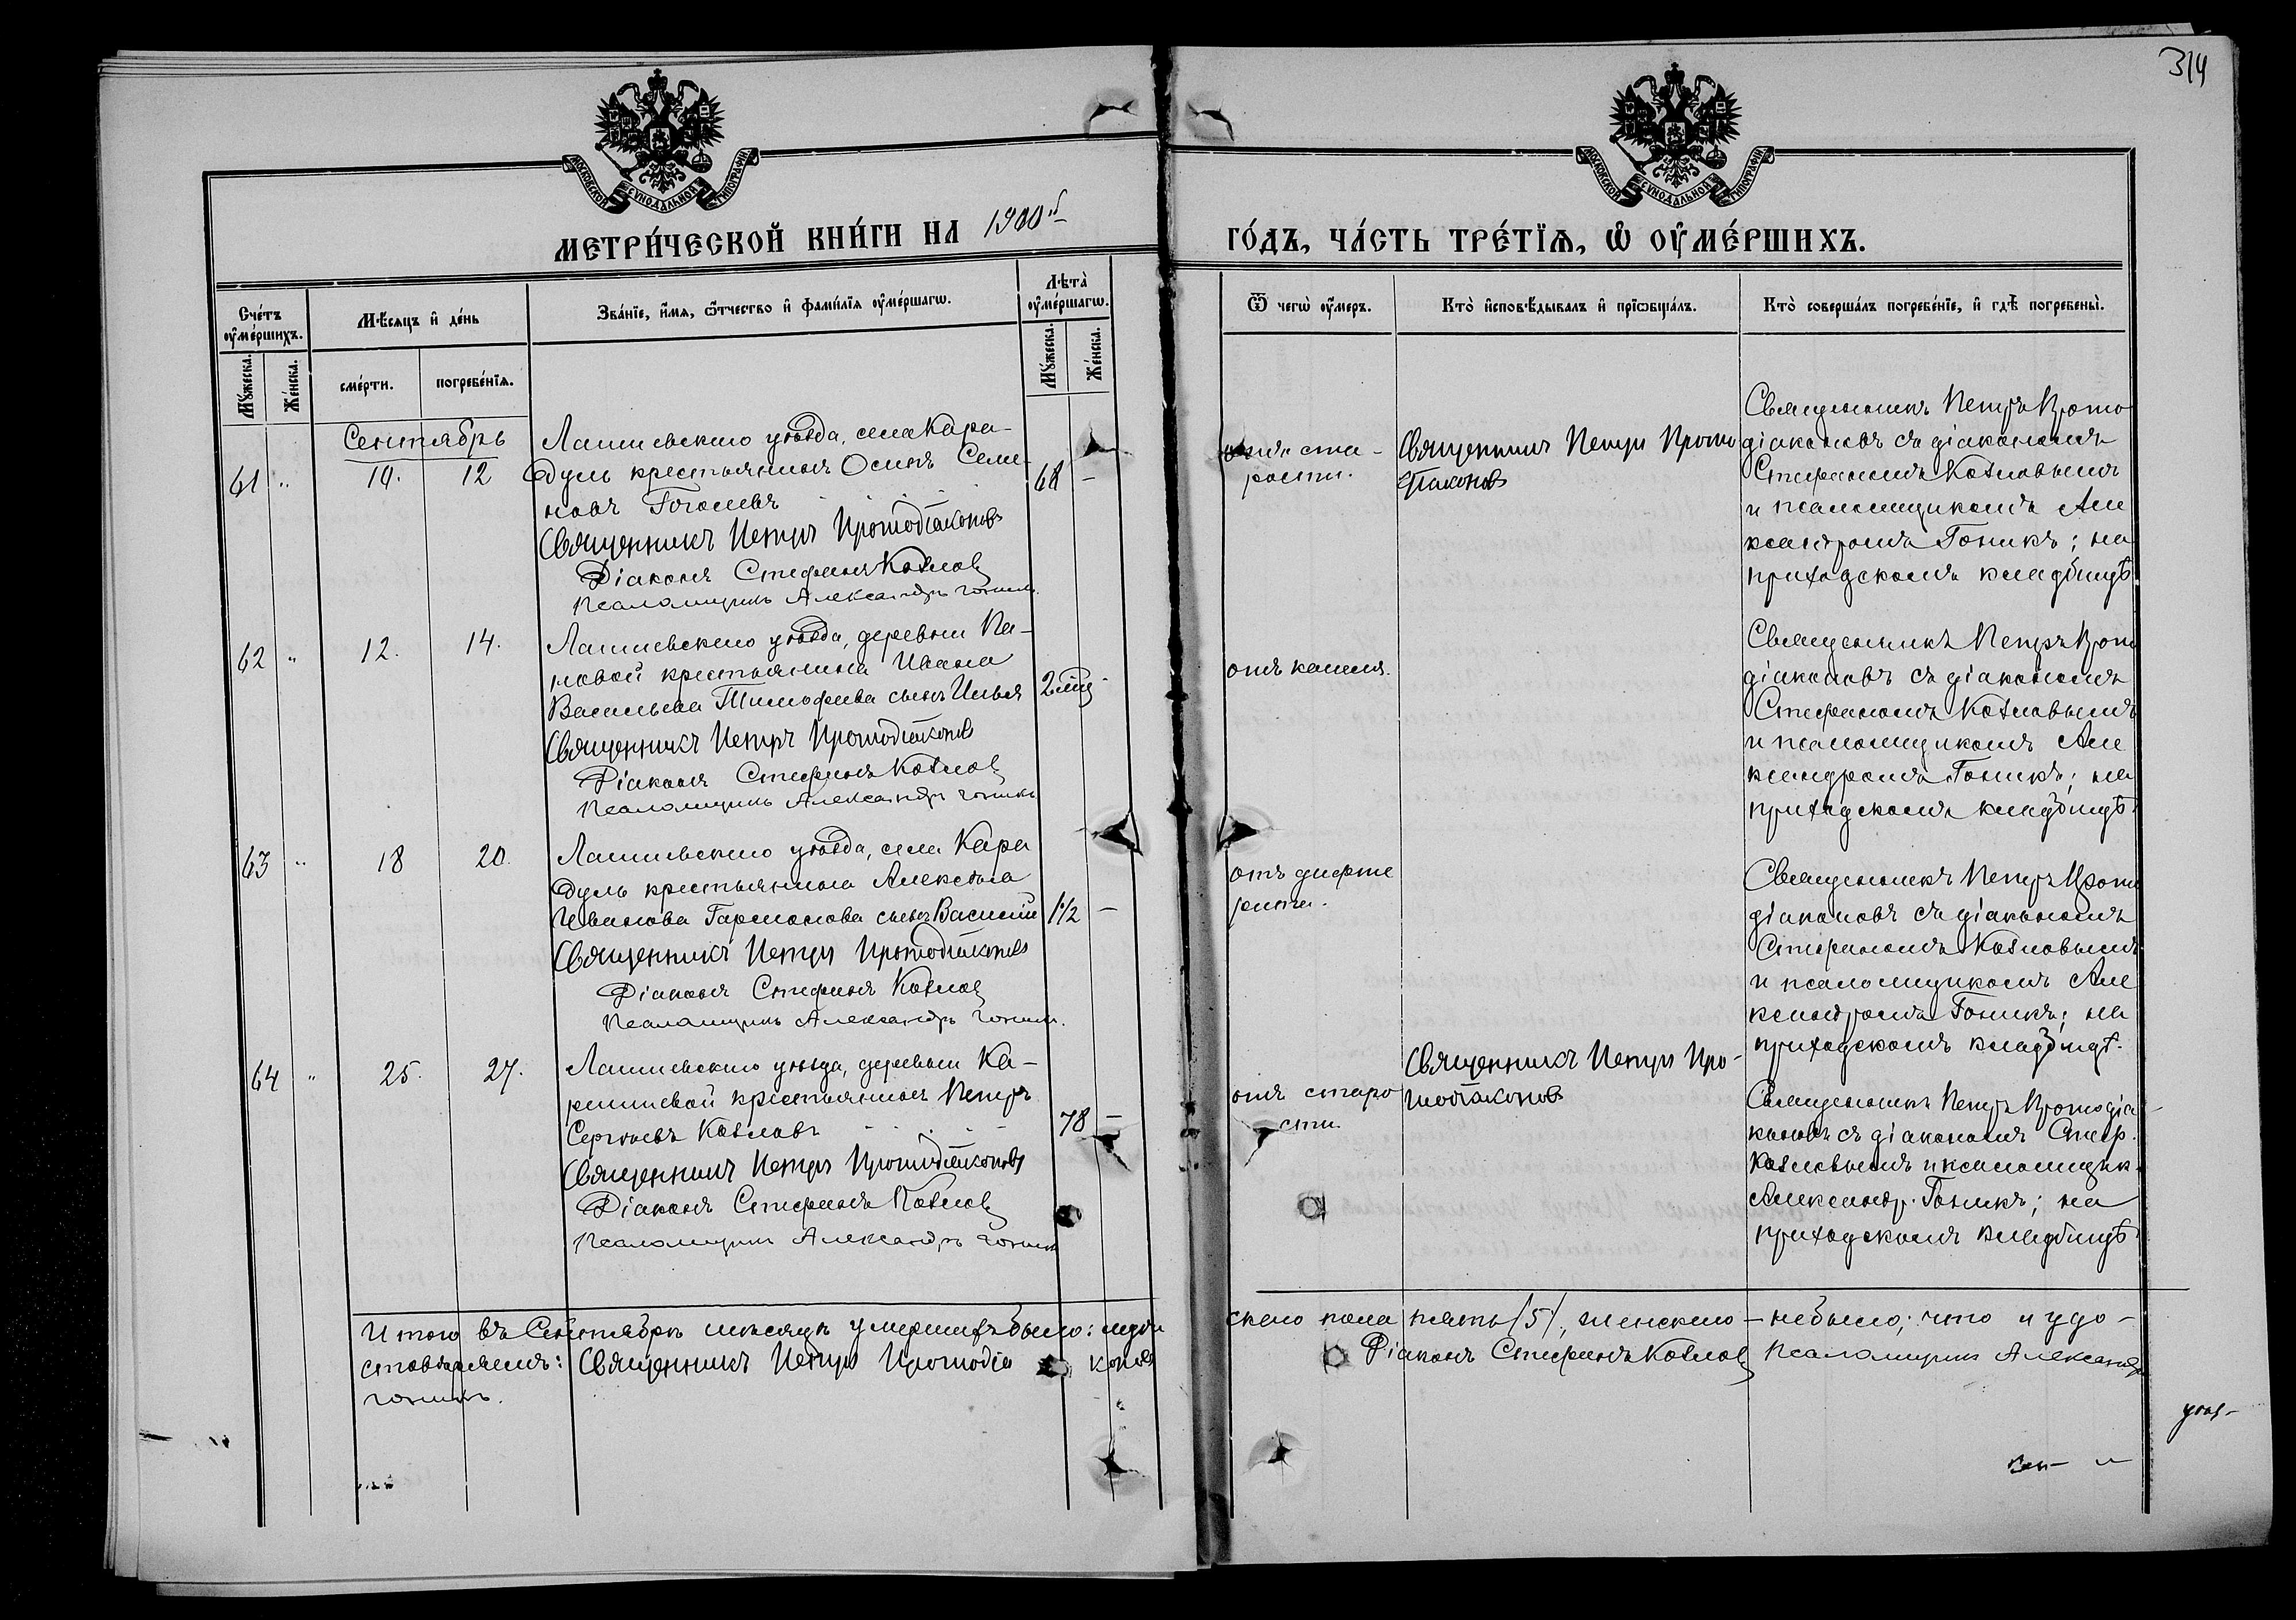 314
МОСКОВСКОЙ СѴНОДАЛЬНОЙ ТИПОГРАФІИ
МОСКОВСКОЙ СѴНОДАЛЬНОЙ ТИПОГРАФІИ
МЕТРИ́ЧЕСКОЙ КНИ́ГИ НА 1900й
ГО́ДЪ, ЧА́СТЬ ТРЕ́ТІѦ, Ѡ҆ ОУ҆МЕ́РШИХЪ.
Сче́тъ оу҆ме́ршихъ.
Мѣ́сяцъ и҆ де́нь
Зва́нїе, и҆́мя, ѻ҆́тчество и҆ фамѝлїя оу҆ме́ршагѡ.
Лѣта̀ оу҆ме́ршагѡ.
Ѿ чегѡ̀ оу҆́меръ.
Кто̀ и҆сповѣ́дывалъ и҆ прїѡбща́лъ.
Кто̀ соверша́лъ погребе́нїе, и҆ гдѣ̀ погребены̀.
Мꙋ́жеска.
Же́нска.
сме́рти.
погребе́нїя.
Мꙋ́жеска.
Же́нска.
Сентябрь
61 " 10. 12
Лаишевскаго уѣзда, села Кара-
дуль крестьянинъ Осипъ Семе-
новъ Гоголевъ
68 -
Священникъ Петръ Протодіаконовъ
Діаконъ Стефанъ Козлов
Псаломщикъ Александръ Гоникъ.
отъ ста-
рости.
Священникъ Петръ Прото
діаконовъ
Священникъ Петръ Прото
діаконовъ съ діакономъ
Стефаномъ Козловымъ
и псаломщикомъ Але
ксандромъ Гоникъ; на
приходскомъ кладбищѣ.
62 " 12. 14.
Лаишевскаго уѣзда, деревни Па-
новой крестьянина Ивана
Васильева Тимофеева сынъ Илья
2 мѣс.
Священникъ Петръ Протодіаконовъ
Діаконъ Стефанъ Козлов
Псаломщикъ Александръ Гоникъ
отъ кашля.
Священникъ Петръ Прото
діаконовъ съ діакономъ
Стефаномъ Козловымъ
и псаломщикомъ Але
ксандромъ Гоникъ; на
приходскомъ кладбищѣ.
63 " 18 20.
Лаишевскаго уѣзда, села Кара
дуль крестьянина Алексѣя
Иванова Гармонова сынъ Василій
1½ -
Священникъ Петръ Протодіаконовъ
Діаконъ Стефанъ Козлов
Псаломщикъ Александръ Гоникъ.
отъ дифте
рита.
Священникъ Петръ Прото
діаконовъ съ діакономъ
Стефаномъ Козловымъ
и псаломщикомъ Але
ксандромъ Гоникъ; на
приходскомъ кладбищѣ.
64 " 25. 27.
Лаишевскаго уѣзда, деревни Ка-
ришевой крестьянинъ Петръ
Сергѣевъ Козловъ
78 -
Священникъ Петръ Протодіаконовъ
Діаконъ Стефанъ Козлов
Псаломщикъ Александръ Гоникъ
отъ старо
сти.
Священникъ Петръ Про-
тодіаконовъ
Священникъ Петръ Протодіа-
коновъ съ діакономъ Стеф.
Козловымъ и псаломщик.
Александр. Гоникъ; на
приходскомъ кладбищѣ
Итого въ Сентябрѣ мѣсяцѣ умершихъ было: муже
скаго пола пять /5/, женскаго - небыло; что и удо-
стовѣряемъ: Священникъ Петръ Протодіаконовъ
Діаконъ Стефанъ Козлов Псаломщикъ Александръ
Гоникъ.